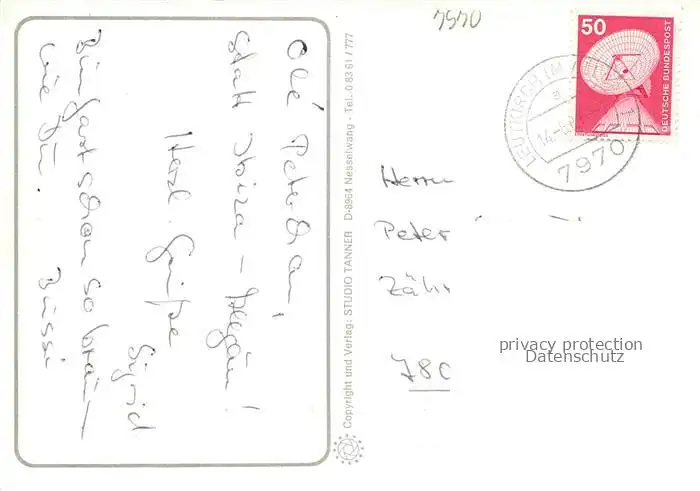 7970
50
DEUTSCHE BUNDESPOST
LEUTKIRCH IM
a
14.-8
7970
Olé Peter
statt Ibiza – Allgäu!
Herzl. Grüße
Sigrid
Bin fast schon so braun
wie Du.
Bussi
Copyright und Verlag: STUDIO TANNER D-8964 Nesselwang - Tel. 0 83 61 / 777
Herrn
Peter
Zähr
78
privacy protection
Datenschutz